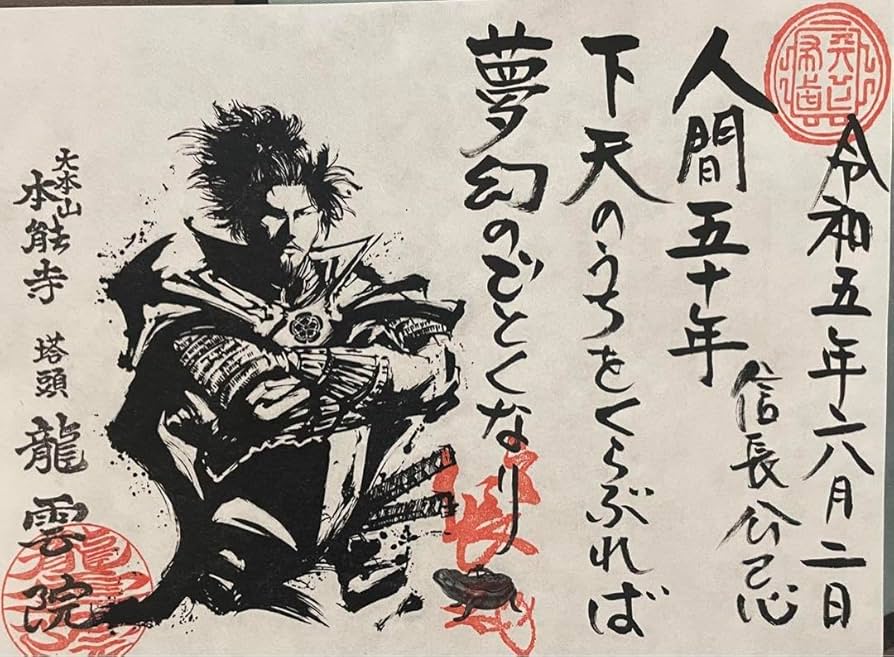 令和五年六月二日
信長公忌
人間五十年
下天のうちをくらぶれば
夢幻のごとくなり
大本山
本能寺
塔頭
龍雲院